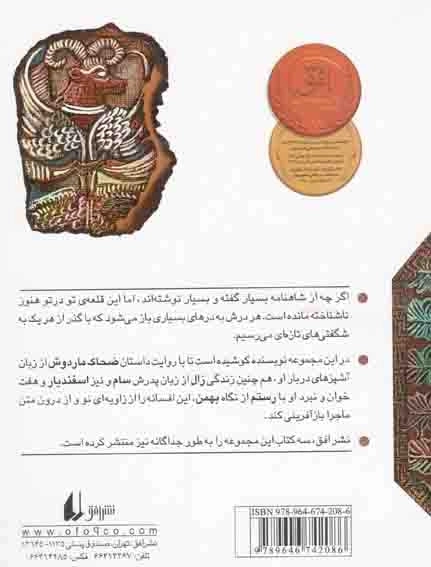 اگر چه از شاهنامه بسیار گفته و بسیار نوشته‌اند، اما این قلعه‌ی تو در تو هنوز
ناشناخته مانده است. هر درش به درهای بسیاری باز می‌شود که با گذر از هر یک به
شگفتی‌های تازه‌ای می‌رسیم.
در این مجموعه نویسنده کوشیده است تا با روایت داستان ضحاک ماردوش از زبان
آشپزهای دربار او، هم چنین زندگی زال از زبان پدرش سام و نیز اسفندیار و هفت
خوان و نبرد او با رستم از نگاه بهمن، این افسانه را از زاویه‌ای نو و از درون متن
ماجرا بازآفرینی کند.
نشر افق، سه کتاب این مجموعه را به طور جداگانه نیز منتشر کرده است.
نشر افق
www.ofoqco.com
نشر افق: تهران، صندوق پستی ۱۱۳۵-۱۳۱۴۵
تلفن: ۶۶۴۱۳۳۶۷ فکس: ۶۶۴۱۴۲۸۵
ISBN 978-964-674-208-6
9 789646 742086